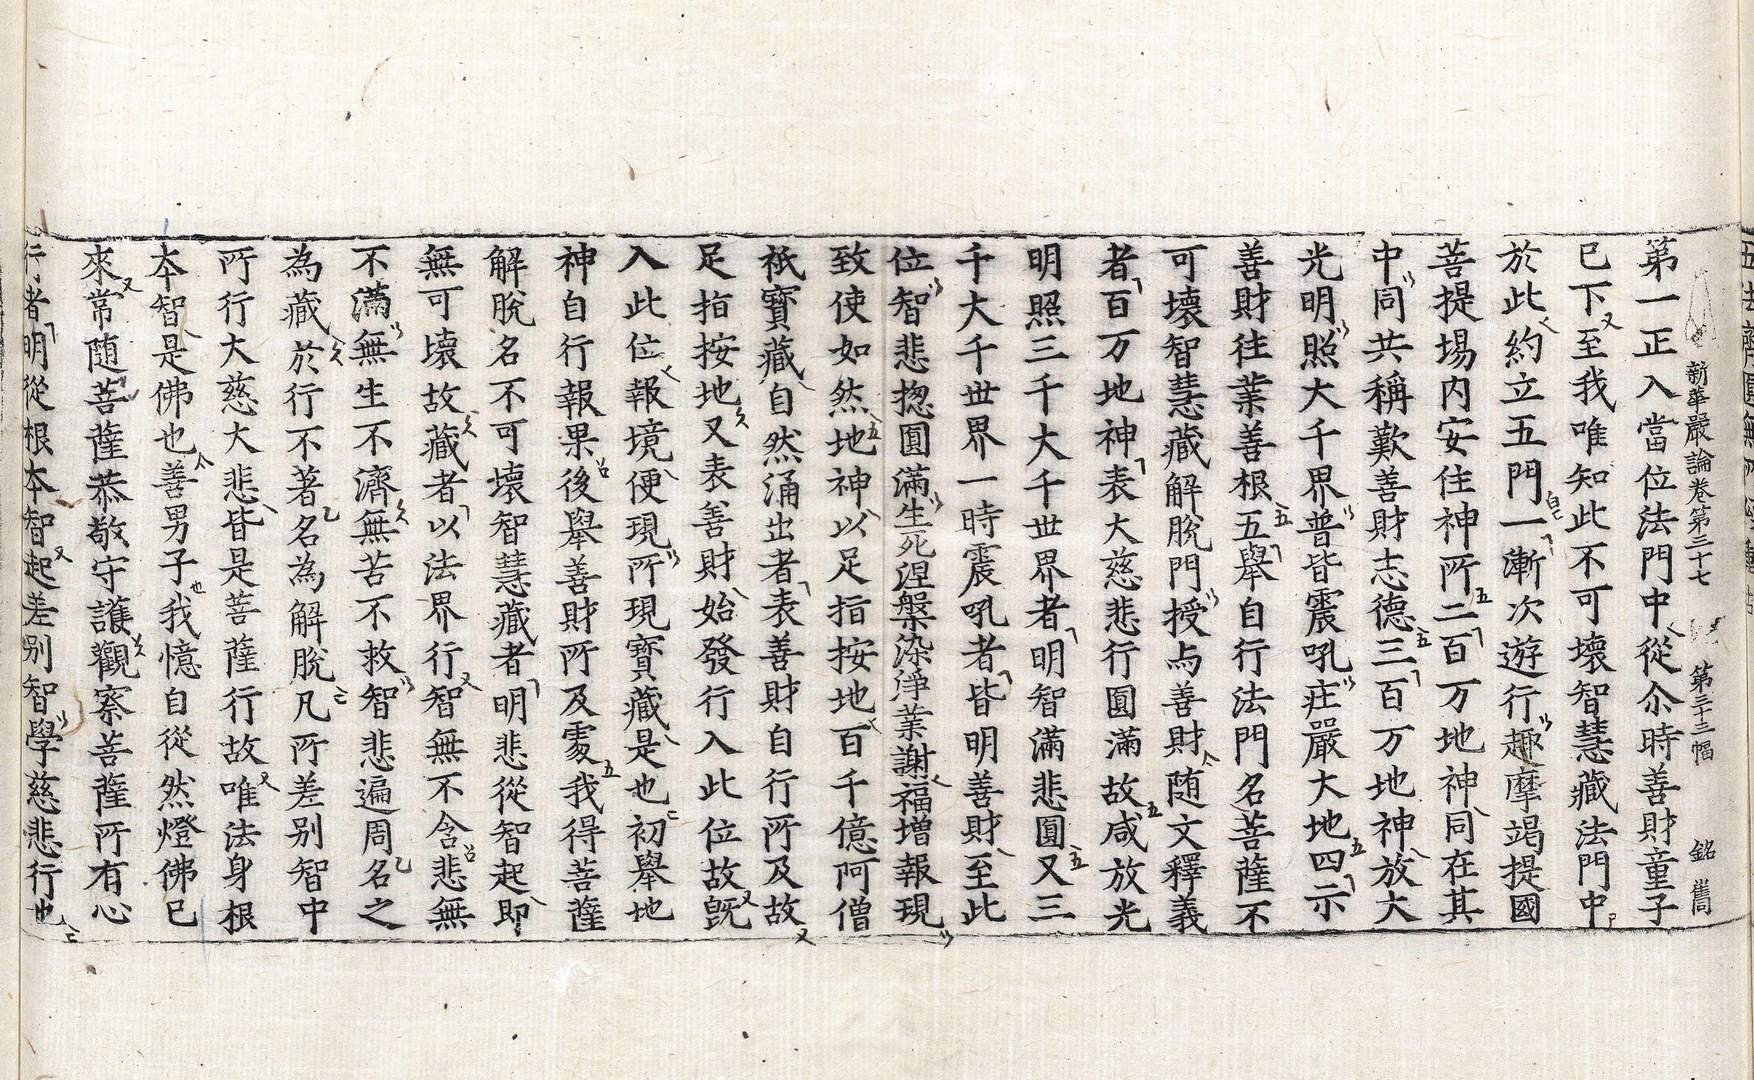 新華嚴論卷第三十七 第三十三幅 銘 舊
第一正入當位法門中從尒時善財童子
已下至我唯知此不可壞智慧藏法門中
於此約立五門一漸次遊行趣摩竭提國
菩提場内安住神所二百万地神同在其
中同共稱歎善財志德三百万地神放大
光明照大千界普皆震吼庄嚴大地四示
善財往業善根五舉自行法門名菩薩不
可壞智慧藏解脫門授与善財随文釋義
者百万地神表大慈悲行圓滿故咸放光
明照三千大千世界者明智滿悲圓又三
千大千世界一時震吼者皆明善財至此
位智悲揔圓滿生死涅槃染淨業謝福增報現
致使如然地神以足指按地百千億阿僧
祇寶藏自然涌出者表善財自行所及故
足指按地又表善財始發行入此位故旣
入此位報境便現所現寶藏是也初舉地
神自行報果後舉善財所及䖏我得菩薩
解脫名不可壞智慧藏者明悲從智起即
無可壞故藏者以法界行智無不含悲無
不滿無生不濟無苦不救智悲遍周名之
為藏於行不著名為解脫凡所差别智中
所行大慈大悲皆是菩薩行故唯法身根
本智是佛也善男子我憶自從然燈佛已
來常随菩薩恭敬守護觀察菩薩所有心
行者明從根本智起差别智學慈悲行也